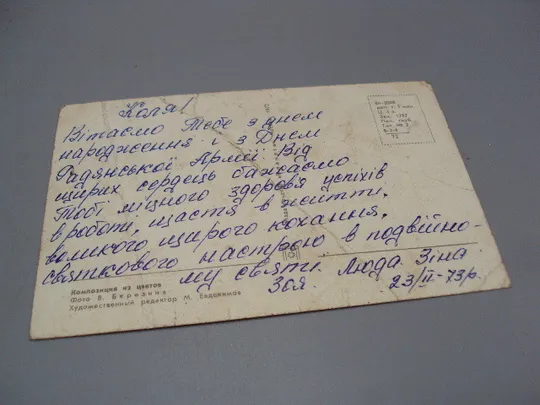 Коля!
Вітаємо Тебе з днем
народження і з Днем
Радянської Армії. Від
щирих сердець бажаємо
Тобі міцного здоровя успіхів
в роботі, щастя в житті.
великого щирого кохання.
святкового настрою в подвійно-
му святі. Люда. Зіна
Зоя. 23/ІІ-73р.
Композиция из цветов
Фото В. Березина
Художественный редактор М. Евдокимов